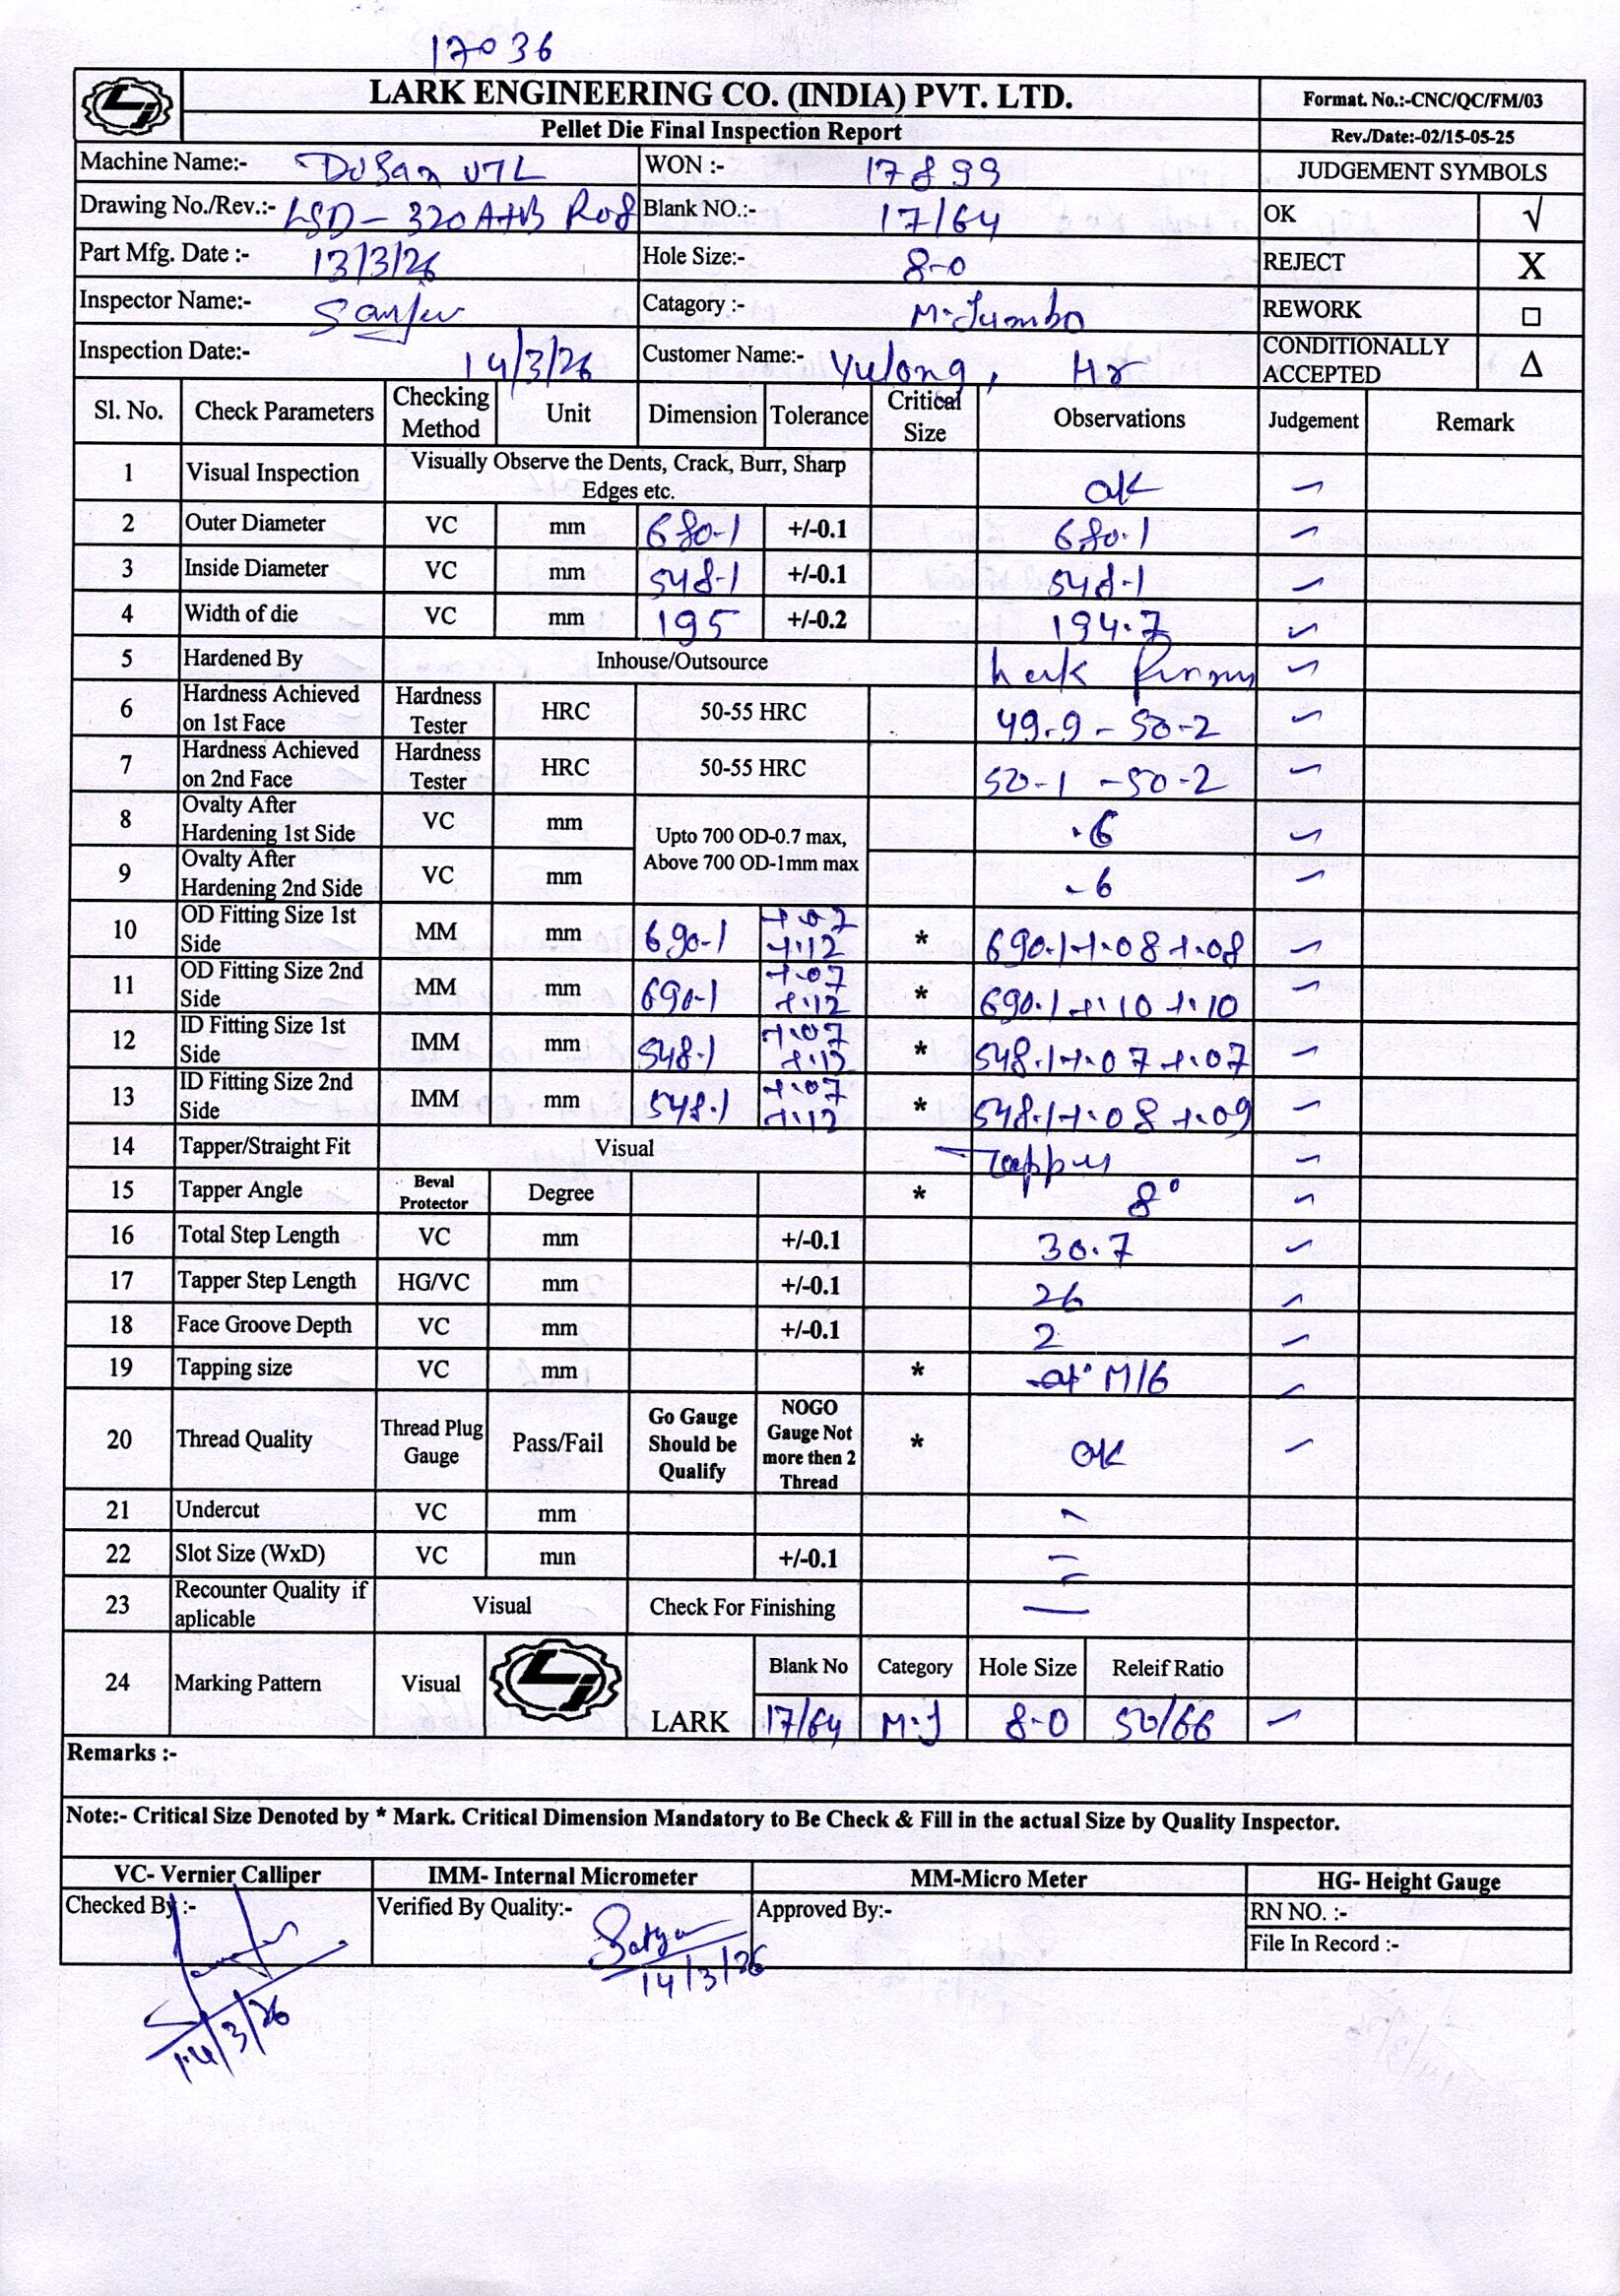 17036
LARK ENGINEERING CO. (INDIA) PVT. LTD.
Format. No.:-CNC/QC/FM/03
Pellet Die Final Inspection Report
Rev./Date:-02/15-05-25
Machine Name:- DoSan VTL WON :- 17899 JUDGEMENT SYMBOLS
Drawing No./Rev.:- LSD-320A+B R08 Blank NO.:- 17/64 OK √
Part Mfg. Date :- 13/3/26 Hole Size:- 8-0 REJECT X
Inspector Name:- Sanjev Catagory :- M-Jumbo REWORK □
Inspection Date:- 14/3/26 Customer Name:- Yulong, Hr CONDITIONALLY ACCEPTED Δ
Sl. No. Check Parameters Checking Method Unit Dimension Tolerance Critical Size Observations Judgement Remark
1 Visual Inspection Visually Observe the Dents, Crack, Burr, Sharp Edges etc. ok
2 Outer Diameter VC mm 680-1 +/-0.1 680.1
3 Inside Diameter VC mm 548-1 +/-0.1 548-1
4 Width of die VC mm 195 +/-0.2 194.7
5 Hardened By Inhouse/Outsource
6 Hardness Achieved on 1st Face Hardness Tester HRC 50-55 HRC 49.9 - 50-2
7 Hardness Achieved on 2nd Face Hardness Tester HRC 50-55 HRC 50-1 - 50-2
8 Ovalty After Hardening 1st Side VC mm Upto 700 OD-0.7 max, Above 700 OD-1mm max .6
9 Ovalty After Hardening 2nd Side VC mm .6
10 OD Fitting Size 1st Side MM mm 690-1 +.07 +.12 * 690.1+.08+.08
11 OD Fitting Size 2nd Side MM mm 690-1 +.07 +.12 * 690.1+.10+.10
12 ID Fitting Size 1st Side IMM mm 548.1 +.07 +.12 * 548.1+.07+.07
13 ID Fitting Size 2nd Side IMM mm 548.1 +.07 +.12 * 548.1+.08+.09
14 Tapper/Straight Fit Visual Tapper
15 Tapper Angle Beval Protector Degree * 8°
16 Total Step Length VC mm +/-0.1 30.7
17 Tapper Step Length HG/VC mm +/-0.1 26
18 Face Groove Depth VC mm +/-0.1 2
19 Tapping size VC mm * M16
20 Thread Quality Thread Plug Gauge Pass/Fail Go Gauge Should be Qualify NOGO Gauge Not more then 2 Thread * ok
21 Undercut VC mm -
22 Slot Size (WxD) VC mm +/-0.1 -
23 Recounter Quality if aplicable Visual Check For Finishing -
24 Marking Pattern Visual LARK Blank No Category Hole Size Releif Ratio
17/64 M.J 8-0 50/66
Remarks :-
Note:- Critical Size Denoted by * Mark. Critical Dimension Mandatory to Be Check & Fill in the actual Size by Quality Inspector.
VC- Vernier Calliper IMM- Internal Micrometer MM-Micro Meter HG- Height Gauge
Checked By :- Verified By Quality:- Satya Approved By:- RN NO. :-
14/3/26 File In Record :-
14/3/26